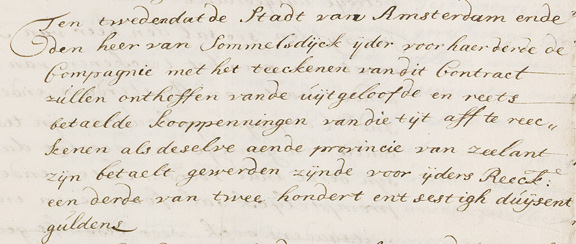 Ten tweden dat de Stadt van Amsterdam ende
den heer van Sommelsdijck ijder voor haer derde de
Compagnie met het teeckenen van dit Contract
zúllen ontheffen vande úijtgeloofde en reets
betaelde kooppenningen van die tijt aff te reec„
kenen als deselve aende provincie van zeelant
zijn betaelt gewerden zijnde voor ijders Reeck:
een derde van twee hondert ent sestigh duijsent
gúldens